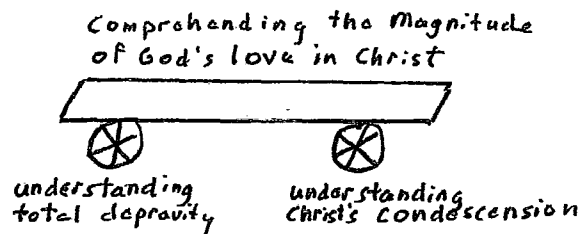 Comprehending the Magnitude
of God's love in Christ
understanding
total depravity
understanding
Christ's condescension